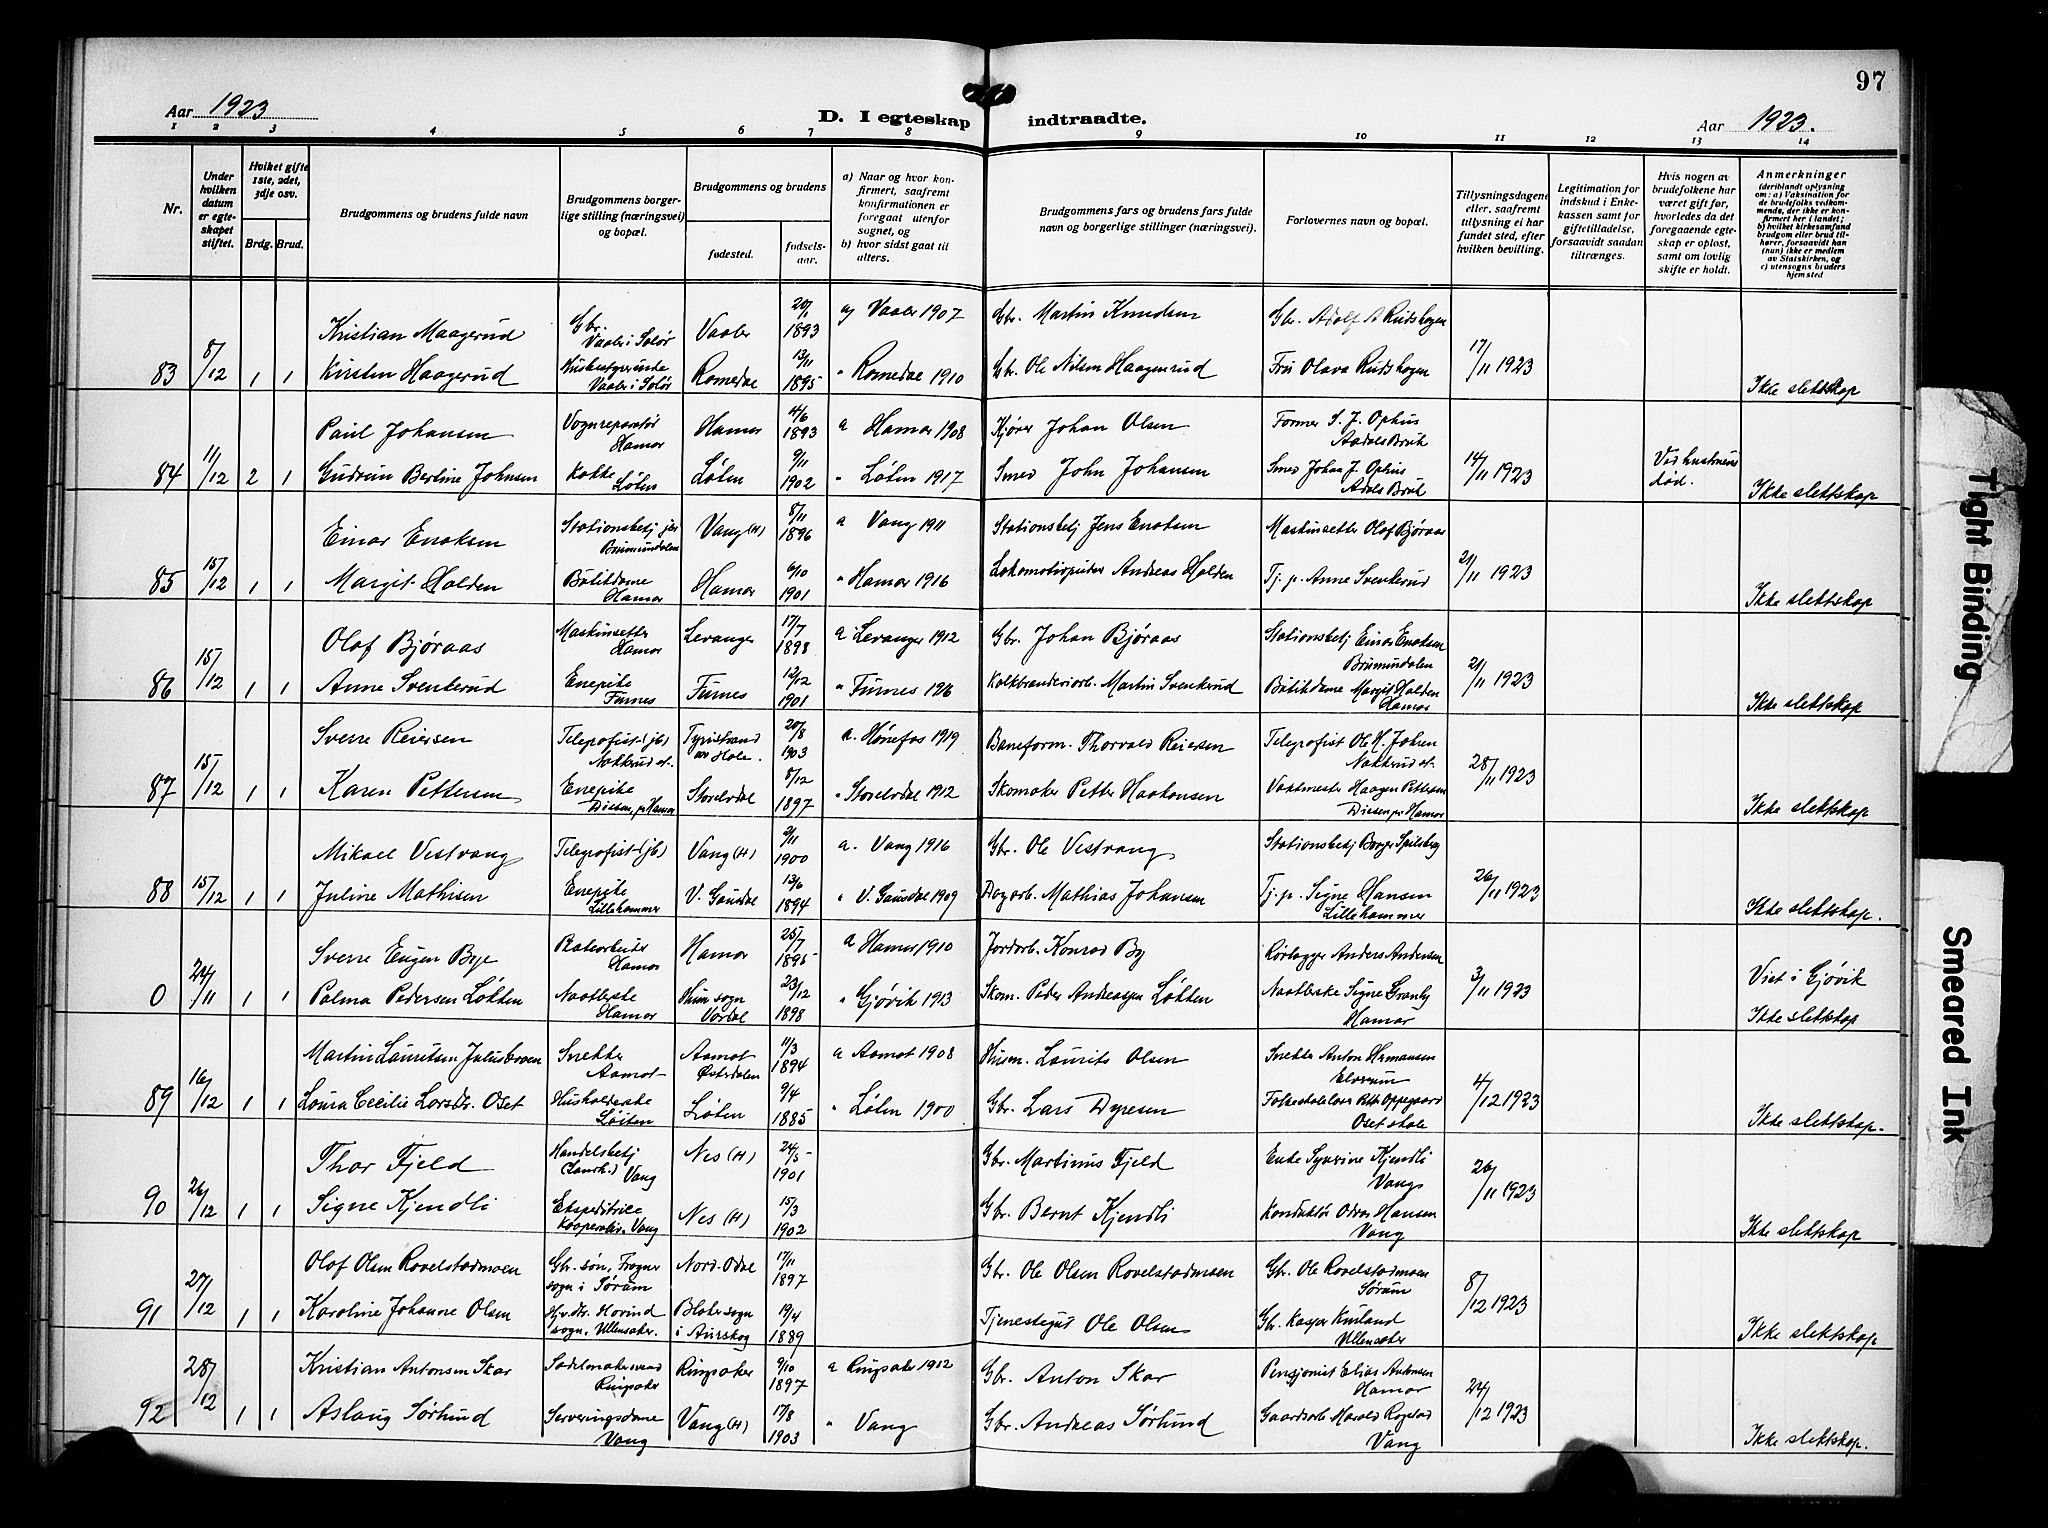 97
Aar 1923
D. I egteskap indtraadte.
Aar 1923.
1 2 3 4 5 6 7 8 9 10 11 12 13 14
Nr.
Under hvilken datum er egteskapet stiftet.
Hvilket gifte 1ste, 2det, 3dje osv.
Brdg. Brud.
Brudgommens og brudens fulde navn
Brudgommens borgerlige stilling (næringsvei) og bopæl.
Brudgommens og brudens
fødested.
fødselsaar.
a) Naar og hvor konfirmert, saafremt konfirmationen er foregaat utenfor sognet, og
b) hvor sidst gaat til alters.
Brudgommens fars og brudens fars fulde navn og borgerlige stillinger (næringsvei).
Forlovernes navn og bopæl.
Tillysningsdagene eller, saafremt tillysning ei har fundet sted, efter hvilken bevilling.
Legitimation for indskud i Enkekassen samt for giftetilladelse, forsaavidt saadan tiltrænges.
Hvis nogen av brudefolkene har været gift før, hvorledes da det foregaaende egteskap er opløst, samt om lovlig skifte er holdt.
Anmerkninger
(deriblandt oplysning om: a) Vaksination for de brudefolks vedkommende, der ikke er konfirmert her i landet;
b) hvilket kirkesamfund brudgom eller brud tilhører, forsaavidt han (hun) ikke er medlem av Statskirken, og
c) utensogns bruders hjemsted
Kristian Maagerud Gbr. Vaaler i Solør Vaaler 1893 a) Vaaler 1907 Gbr. Martin Knudsen Gbr. Adolf A Rudshagen
83 8/12 1 1 Kirsten Haagerud Vaaler i Solør Romedal 13/11 1895 " Romedal 1910 Gbr. Ole Nilsen Haagenrud Fru Olava Rudshagen 17/11 1923 Ikke slektskap
Paul Johansen Vognreparatør Hamar Hamar 4/6 1893 a Hamar 1908 Kjører Johan Olsen Former S. J. Ophus Aadals Bruk
84 11/12 2 1 Gudrun Berline Johnsen Kokke Løten Løten 9/11 1902 " Løten 1917 Smed John Johansen Smed Johan J. Ophus Adals Bruk 14/11 1923 Ved hustruens død. Ikke slektskap
Einar Enoksen Stationsbetj jb Brumunddalen Vang (H) 8/11 1896 a Vang 1911 Stationsbetj Jens Enoksen Maskinsetter Olaf Bjøraas
85 15/12 1 1 Margit Holden Butikdame Hamar Hamar 6/10 1901 " Hamar 1916 Lokomotivpudser Andreas Holden Tj. p. Anne Svenkerud 21/11 1923 Ikke slektskap
Olaf Bjøraas Maskinsetter Hamar Levanger 17/7 1898 a Levanger 1912 Gbr. Johan Bjøraas Stationsbetj Einar Enoksen Brumunddalen
86 15/12 1 1 Anne Svenkerud Enepike Furnes Furnes 12/12 1901 " Furnes 1916 Martin Svenkerud Butikdame Margit Holden Hamar 21/11 1923 Ikke slektskap
Sverre Reiersen Telegrafist (jb) Nakkerud st. Tyristrand av Hole. 20/8 1903 a. Hønefos 1919 Baneform. Thorvald Reiersen Telegrafist Ole H. Johsen Nakkerud st.
87 15/12 1 1 Karen Pettersen Enepike Disen, p Hamar Storelvdal 8/12 1897 " Storelvdal 1912 Skomaker Petter Haakonsen Vaktmester Haagen Pettersen Disen pr Hamar 28/11 1923 Ikke slektskap
Mikael Vestvang Telegrafist (jb) Vang (H) 2/11 1900 a. Vang 1916 Gbr. Ole Vestvang Stationsbetj Borger Spilsberg
88 15/12 1 1 Juline Mathisen Enepike Lillehammer V. Gausdal 13/6 1894 " V. Gausdal 1909 Dagarb. Mathias Johansen Tj. p. Signe Hansen Lillehammer 26/11 1923 Ikke slektskap.
Sverre Eugen Bye Hamar Hamar 25/7 1895 a Hamar 1910 Jordarb. Konrad By Rørlægger Anders Andersen
0 24/11 1 1 Palma Pedersen Løkken Hamar Hunn sogn Vardal 23/12 1898 " Gjøvik 1913 Skom. Peder Andreassen Løkken Signe Granly Hamar 3/11 1923 Viet i Gjøvik Ikke slektskap
Martin Lauritsen Juliusbroen Snekker Aamot Aamot Østerdalen 11/3 1894 a Aamot 1908 Husm. Laurits Olsen Snekker Anton Hermansen Elverum
89 16/12 1 1 Loura Cecilie Larsdtr. Oset Husholderske Løiten Løten 9/4 1885 " Løten 1900 Gbr. Lars Dyresen Oppegaard Oset skole 4/12 1923 Ikke slektskap.
Thor Fjeld Handelsbetj Vang Nes (H) 24/5 1901 Gbr. Martinus Fjeld Enke Syverine Kjendli Vang
90 26/12 1 1 Signe Kjendli Ekspeditrice Kooperativ. Vang Nes (H) 15/3 1902 Gbr. Bernt Kjendli Konduktør Hansen Vang 26/11 1923 Ikke slektskap
Olaf Olsen Rovelstadmoen Gbr. søn, Frogner sogn i Sørum Nord-Odal 17/11 1897 Gbr. Ole Olsen Rovelstadmoen Gbr. Ole Rovelstadmoen Sørum
91 27/12 1 1 Karoline Johanne Olsen Hovind sogn, Ullensaker. Blaker sogn i Aurskog 19/4 1889 Tjenestegut Ole Olsen Gbr. Kasper Ullensaker 8/12 1923 Ikke slektskap
Kristian Antonsen Skar Sadelmakersvend Ringsaker Ringsaker 9/10 1897 a Ringsaker 1912 Gbr. Anton Skar Pensjonist Elias Antonsen Hamar
92 28/12 1 1 Aslaug Sørlund Serveringsdame Vang Vang (H) 17/8 1903 " Vang Gbr. Andreas Sørlund Gaardsarb Harald Rogstad Vang 24/12 1923 Ikke slektskap.
Tight Binding
Smeared Ink